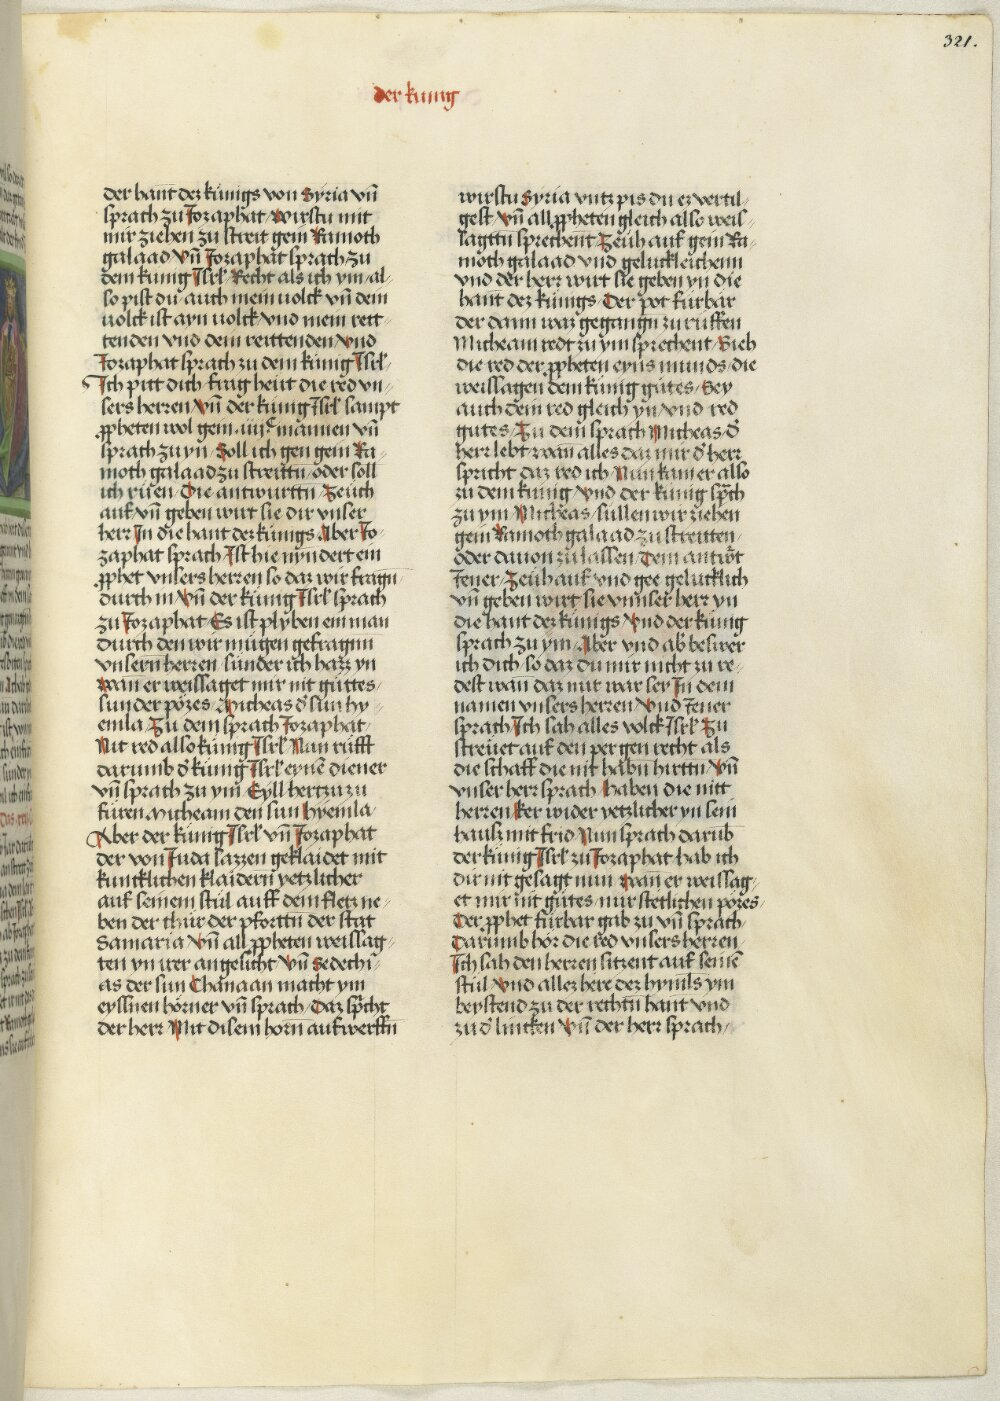 321.
der kunig
der hant dez kunigs von Syria vn̄
sprach zu Jozaphat Wirstu mit
mir ziehen zu streit gein Ramoth
galaad Vn̄ Jozaphat sprach zu
dem kunig Isrl Recht als ich ym al⸗
so pist du auch mein uolck vn̄ dein
uolck ist ayn uolck vnd mein reit⸗
tenden vnd dein reittenden Vnd
Jozaphat sprach zu dem kunig Isrl
Ich pitt dich frag heut die red vn⸗
sers herren Vn̄ der kunig Isrl sampt
ꝓpheten wol gein iiijᶜ mannen vn̄
sprach zu yn Soll ich gen gein Ra⸗
moth galaad zu streittn̄ oder soll
ich ruen Die antwurttn̄ Zeuch
auf vn̄ geben wirt sie dir vnser
herr In die hant dez kunigs Aber Jo⸗
zaphat sprach Ist hie nyndert ein
ꝓphet vnsers herren so daz wir fragn̄
durch in Vn̄ der kunig Isrl sprach
zu Jozaphat Es ist plyben ein man
durch den wir mugen gefragnn
vnsern herren sunder ich hazz yn
wan̄ er weissaget mir nit guttes
sun der pözes Micheas d̓ sun hy⸗
emla Zu dem sprach Jozaphat
Nit red also kunig Isrl Nun rüfft
darumb d̓ kunig Isrl eynē diener
vn̄ sprach zu ym Eyll hertzu zu
füren Micheam den sun Hyemla
Aber der kunig Isrl vn̄ Jozaphat
der von Juda sazzen geklaidet mit
kuncklichen klaidern yetzlicher
auf seinem stul auff dem fletz ne⸗
ben der thür der pforttn̄ der stat
Samaria Vn̄ all ꝓpheten weissag⸗
ten yn irer angesicht Vn̄ Sedechi⸗
as der sun Chanaan macht ym
eyssnen hörner vn̄ sprach Daz sp̄cht
der herr Mit disem horn aufwerffn̄
wirstu Syria vntz pis du ez vertil⸗
gest Vn̄ all ꝓpheten gleich also weis⸗
sagttn̄ sprechent Zeuh auf gein Ra⸗
moth galaad vnd geluckleichenn
vnd der herr wirt sie geben yn die
hant dez kunigs Der pot fürbar
der dann waz gegangn̄ zu rüffen
Micheam redt zu ym sprechent Sieh
die red der ꝓpheten eyns munds die
weissagen dem kunig gutes Sey
auch dein red gleich yn vnd red
gutes Zu dem sprach Micheas d̓
herr lebt wan̄ alles daz mir d̓ herr
spricht daz red ich Nun kam er also
zu dem kunig Vnd der kunig sp̄ch
zu ym Micheas sullen wir ziehen
gein Ramoth galaad zu streitten
oder dauon zu lassen Dem antw̄t
Jener Zeuh auf vnd gee gelucklich
vn̄ geben wirt sie vnnser herr yn
die hant dez kunigs Vnd der kunig
sprach zu ym Aber vnd ab̓ beswer
ich dich so daz du mir nicht zu re⸗
dest wan̄ daz mir war sey In dem
namen vnsers herren Vnd Jener
sprach Ich sah alles volck Isrl Zu
streuet auf den pergen recht als
die schaff die nit habn̄ hirttn̄ Vn̄
vnser herr sprach Haben die nitt
herren Ker wider yetzlicher yn sein
hausz mit frid Nun sprach darub
der kunig Isrl zu Jozaphat hab ich
dir nit gesagt nun Wan̄ er weissag⸗
et mir nit gutes nur stetlichen pözes
Der ꝓphet fürbar gab zu vn̄ sprach
Darumb hör die red vnsers herren
Ich sah den herren sitzent auf seinē
stul Vnd allez here dez hymils ym
beystend zu der rechtn̄ hant vnd
zu d̓ lincken Vn̄ der herr sprach